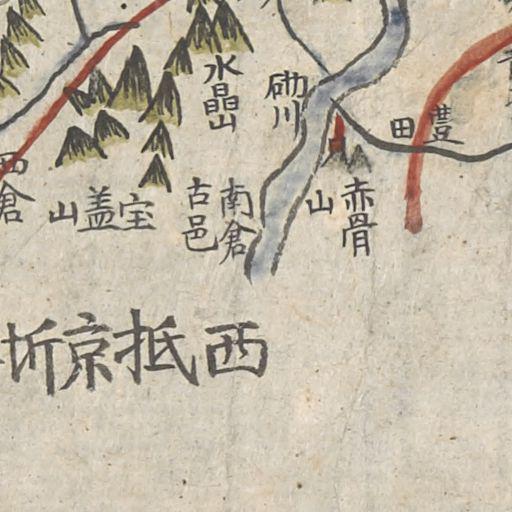 水晶山
砺川
豊田
赤骨山
南倉
古邑
宝盖山
西倉
西抵京圻